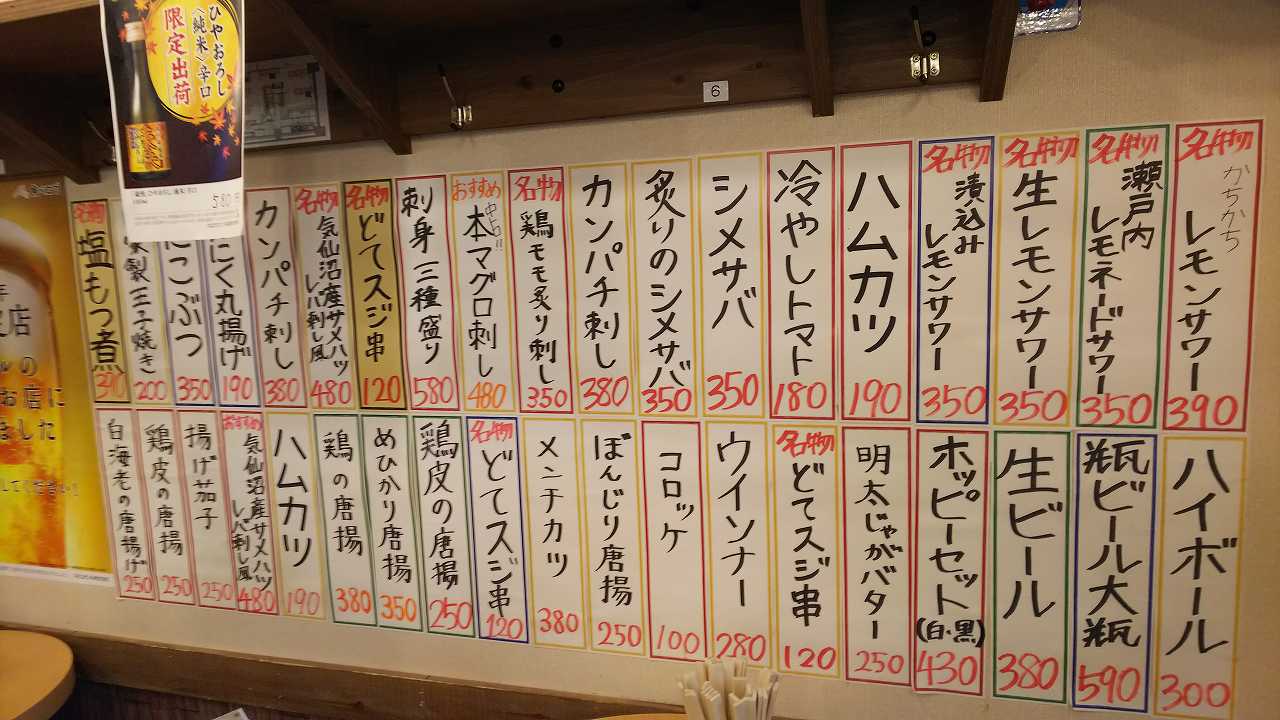 ひやおろし
〈純米〉辛口
限定出荷
580円
6
名物
かちかち
レモンサワー
390
名物
瀬戸内
レモネードサワー
350
名物
生レモンサワー
350
名物
漬込み
レモンサワー
350
ハムカツ
190
冷やしトマト
180
シメサバ
350
炙りのシメサバ
350
カンパチ刺し
380
名物
鶏モモ炙り刺し
350
おすすめ
中とろ!!
本マグロ刺し
480
刺身三種盛り
580
名物
どてスジ串
120
名物
気仙沼産サメハツ
レバ刺し風
480
カンパチ刺し
380
にく丸揚げ
190
にこぶつ
350
製玉子焼き
200
名物
塩もつ煮
390
ハイボール
300
瓶ビール大瓶
590
生ビール
380
ホッピーセット
(白・黒)
430
明太じゃがバター
250
名物
どてスジ串
120
ウインナー
280
コロッケ
100
ぼんじり唐揚
250
メンチカツ
380
名物
どてスジ串
120
鶏皮の唐揚
250
めひかり唐揚
350
鶏の唐揚
380
ハムカツ
190
おすすめ
気仙沼産サメハツ
レバ刺し風
480
揚げ茄子
250
鶏皮の唐揚
250
白海老の唐揚げ
250
年
店
ルの
お店に
ました